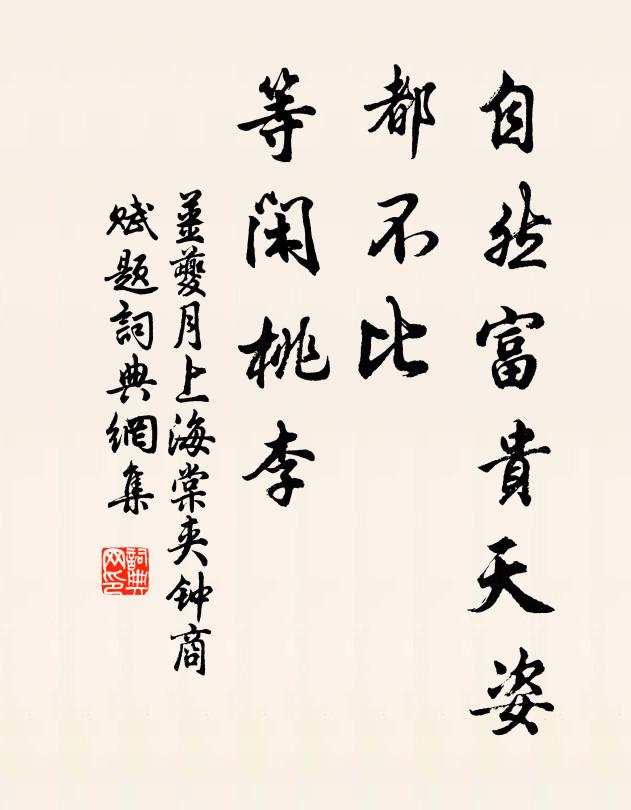 自然富貴天姿
都不比
等閑桃李
薑夔月上海棠夹钟商
赋题詞典網集
詞典网印